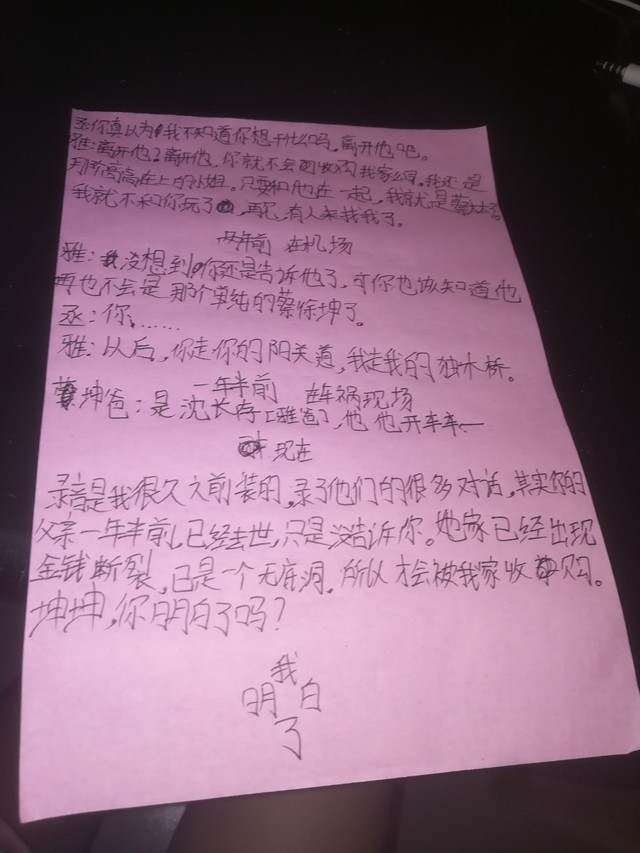 丞:你真以为我不知道你想干什么吗,离开他吧。
雅:离开他?离开他,你就不会收购我家公司,我还是
那所高高在上的小姐。只要和他在一起,我就是蔡太太了。
我就不和你玩了,再见,有人来找我了。
两年前 在机场
雅:我没想到你还是告诉他了,可你也该知道他
再也不会是那个单纯的蔡徐坤了。
丞:你……
雅:以后,你走你的阳关道,我走我的独木桥。
一年半前 在车祸现场
坤爸:是沈长存[雅爸],他他开车车
现在
录音是我很久之前装的,录了他们的很多对话,其实你的
父亲一年半前已经去世,只是没告诉你。她家已经出现
金钱断裂,已是一个无底洞,所以才会被我家收购。
坤坤,你明白了吗?
我
明白
了